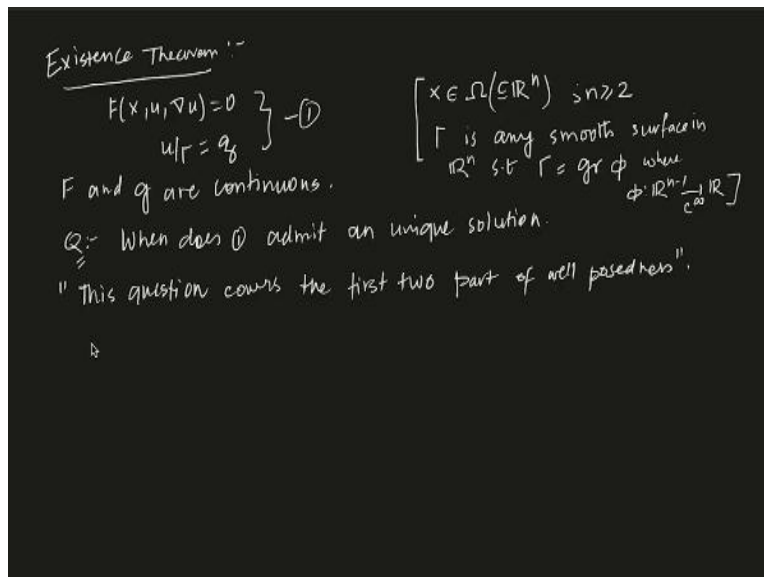 Existence Theorem :-
F(x, u, ∇u) = 0
u/Γ = g } - ①
[ x ∈ Ω(⊆ ℝⁿ) ; n ≥ 2
Γ is any smooth surface in
ℝⁿ s.t Γ = gr ϕ where
ϕ: ℝⁿ⁻¹ →_{C^∞} ℝ ]
F and g are continuous.
Q:- When does ① admit an unique solution.
" This question covers the first two part of well posedness".